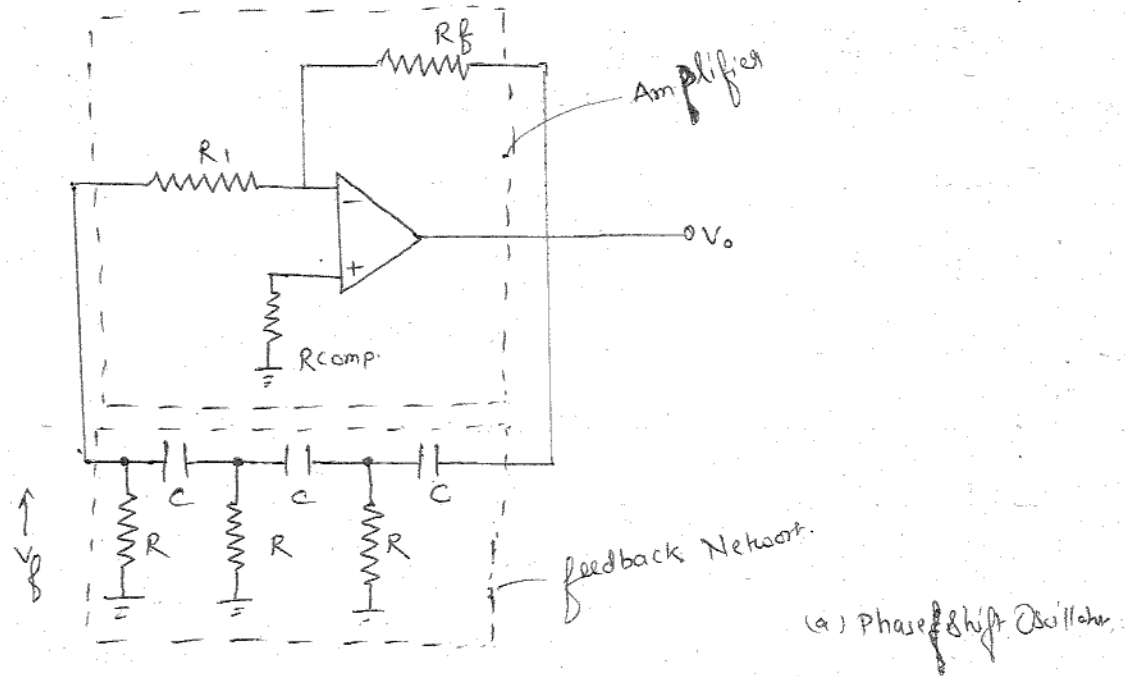 Rf
Amplifier
R1
−
+
Vo
Rcomp.
C
C
C
R
R
R
Vf
feedback Networt.
(a) Phase shift Oscillator.